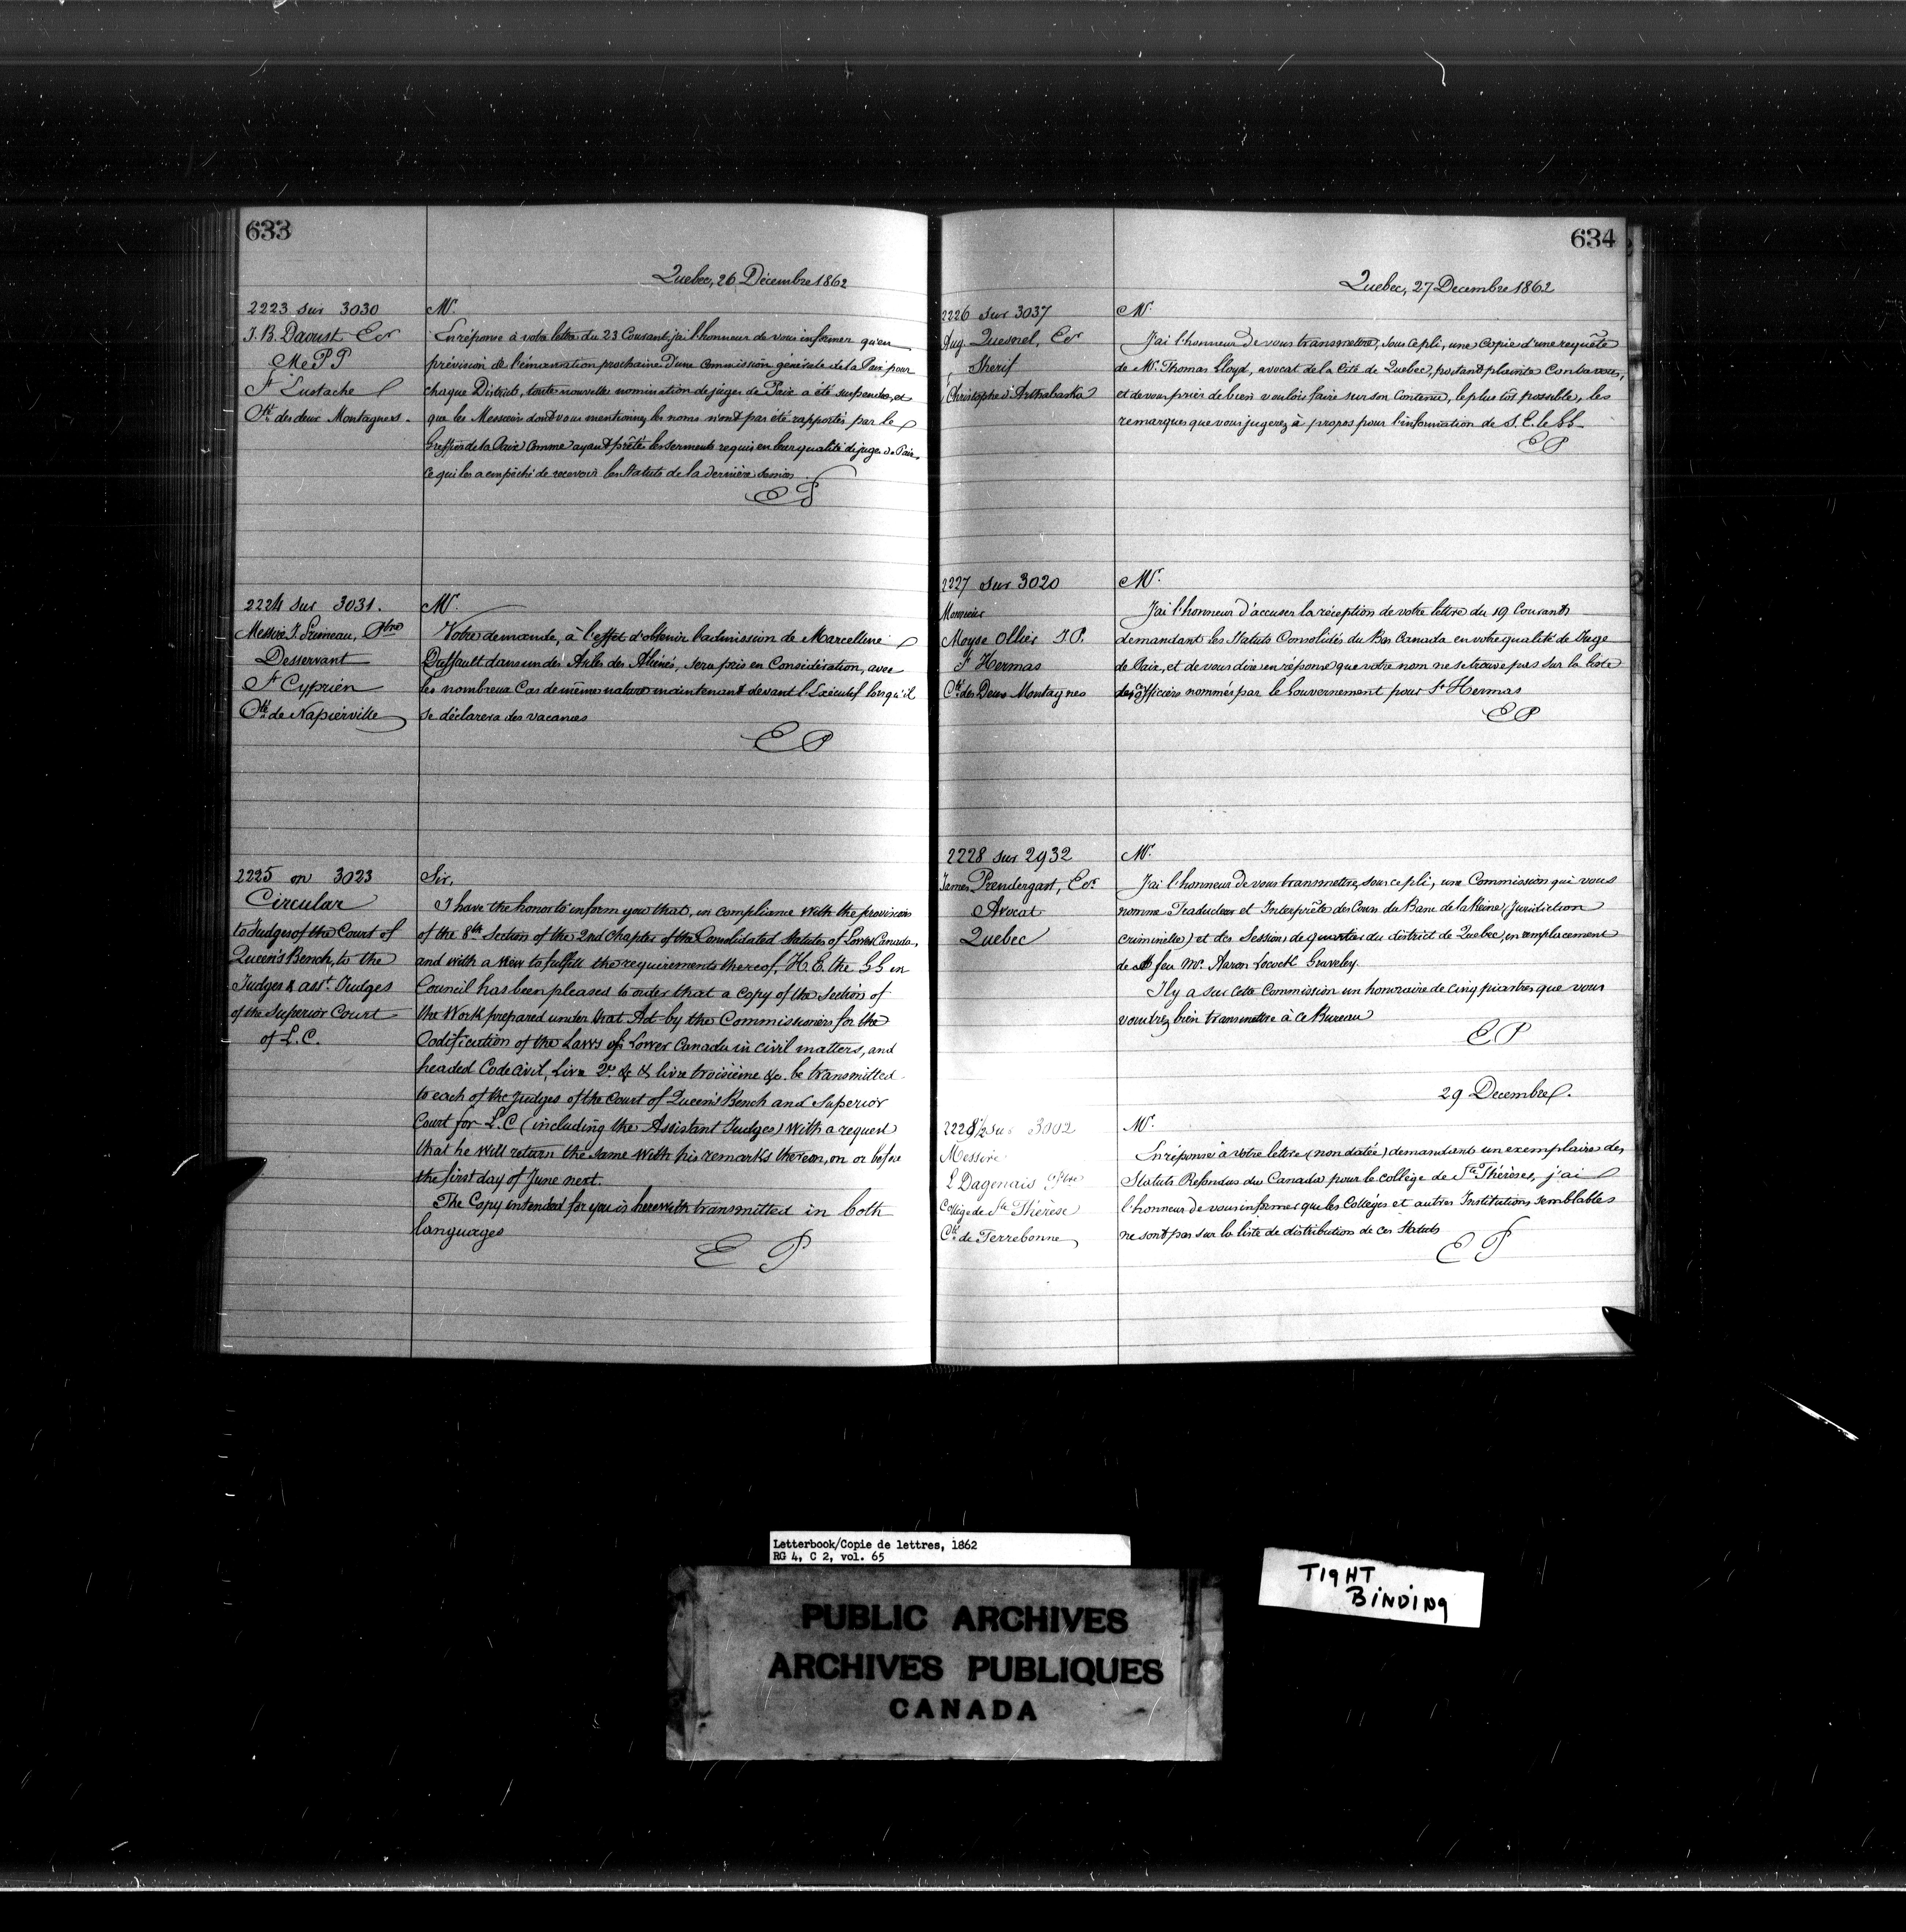 633
Quebec, 26 Décembre 1862
2223 sur 3030
J. B. Daoust Ecr
M P P
St Eustache
Cté des deux Montagnes.
Mr.
En réponse à votre lettre du 23 Courant, j'ai l'honneur de vous informer qu'en
prévision de l'émanation prochaine d'une Commission générale de la Paix pour
chaque District, toute nouvelle nomination de juges de Paix a été suspendue, et
que les Messieurs dont vous mentionnez les noms n'ont pas été rapportés par le
Greffier de la Paix comme ayant prêté les serments requis en leur qualité de juges de Paix.
Ce qui les a empêché de recevoir les Statuts de la dernière Session
E P
2224 sur 3031.
Messire J. Primeau, Ptre
Desservant
St Cyprien
Cté de Napierville
Mr.
Votre demande, à l'effet d'obtenir l'admission de Marcelline
Duffault dans un des Asiles des Aliénés, sera pris en Considération, avec
les nombreux Cas de même nature maintenant devant l'Exécutif lorsqu'il
se déclarera des vacances
E P
2225 on 3023
Circular
to Judges of the Court of
Queen's Bench, to the
Judges & asst. Judges
of the Superior Court
of L. C.
Sir,
I have the honor to inform you that, in compliance with the provisions
of the 8th Section of the 2nd Chapter of the Consolidated Statutes of Lower Canada,
and with a view to fulfill the requirements thereof, H. E. the GG in
Council has been pleased to order that a copy of the Section of
the Work prepared under that Act by the Commissioners for the
Codification of the Laws of Lower Canada in civil matters, and
headed Code civil, Livre 2e & & livre troisième &c. be transmitted
to each of the judges of the Court of Queen's Bench and Superior
Court for L. C (including the Assistant Judges) with a request
that he will return the same with his remarks thereon, on or before
the first day of June next.
The Copy intended for you is herewith transmitted in both
languages
E P
634
Quebec, 27 Decembre 1862
2226 sur 3037
Aug. Quesnel, Ecr
Sherif
Christophe d'Arthabaska
Mr.
J'ai l'honneur de vous transmettre, sous ce pli, une copie d'une requête
de Mr. Thomas Lloyd, avocat de la Cité de Quebec, portant plainte contre vous,
et de vous prier de bien vouloir faire sur son Contenu, le plus tôt possible, les
remarques que vous jugerez à propos pour l'information de S. E. le GG
E P
2227 sur 3020
Monsieur
Moyse Ollier J.P.
St Hermas
Cté des Deux Montagnes
Mr.
J'ai l'honneur d'accuser la réception de votre lettre du 19 Courant
demandant les Statuts Consolidés du Bas Canada en votre qualité de Juge
de Paix, et de vous dire en réponse que votre nom ne se trouve pas sur la liste
des officiers nommés par le Gouvernement pour St Hermas
E P
2228 sur 2932
James Prendergast, Ecr
Avocat
Quebec
Mr.
J'ai l'honneur de vous transmettre sous ce pli, une Commission qui vous
nomme Traducteur et Interprète des Cours du Banc de la Reine (Juridiction
criminelle) et des Sessions de quartier du district de Quebec, en remplacement
de feu Mr. Aaron Locock Graveley.
Il y a sur cette Commission un honoraire de cinq piastres que vous
voudrez bien transmettre à ce Bureau
E P
29 Decembre.
2228 1/2 sur 3002
Messire
L Dagenais Ptre
Collège de Ste Thérèse
Cté de Terrebonne
Mr.
En réponse à votre lettre (non datée) demandant un exemplaire des
Statuts Refondus du Canada pour le collège de Ste Thérèse, j'ai
l'honneur de vous informer que les Collèges et autres Institutions semblables
ne sont pas sur la liste de distribution de ces Statuts
E P
Letterbook/Copie de lettres, 1862
RG 4, C 2, vol. 65
TIGHT
BINDING
PUBLIC ARCHIVES
ARCHIVES PUBLIQUES
CANADA